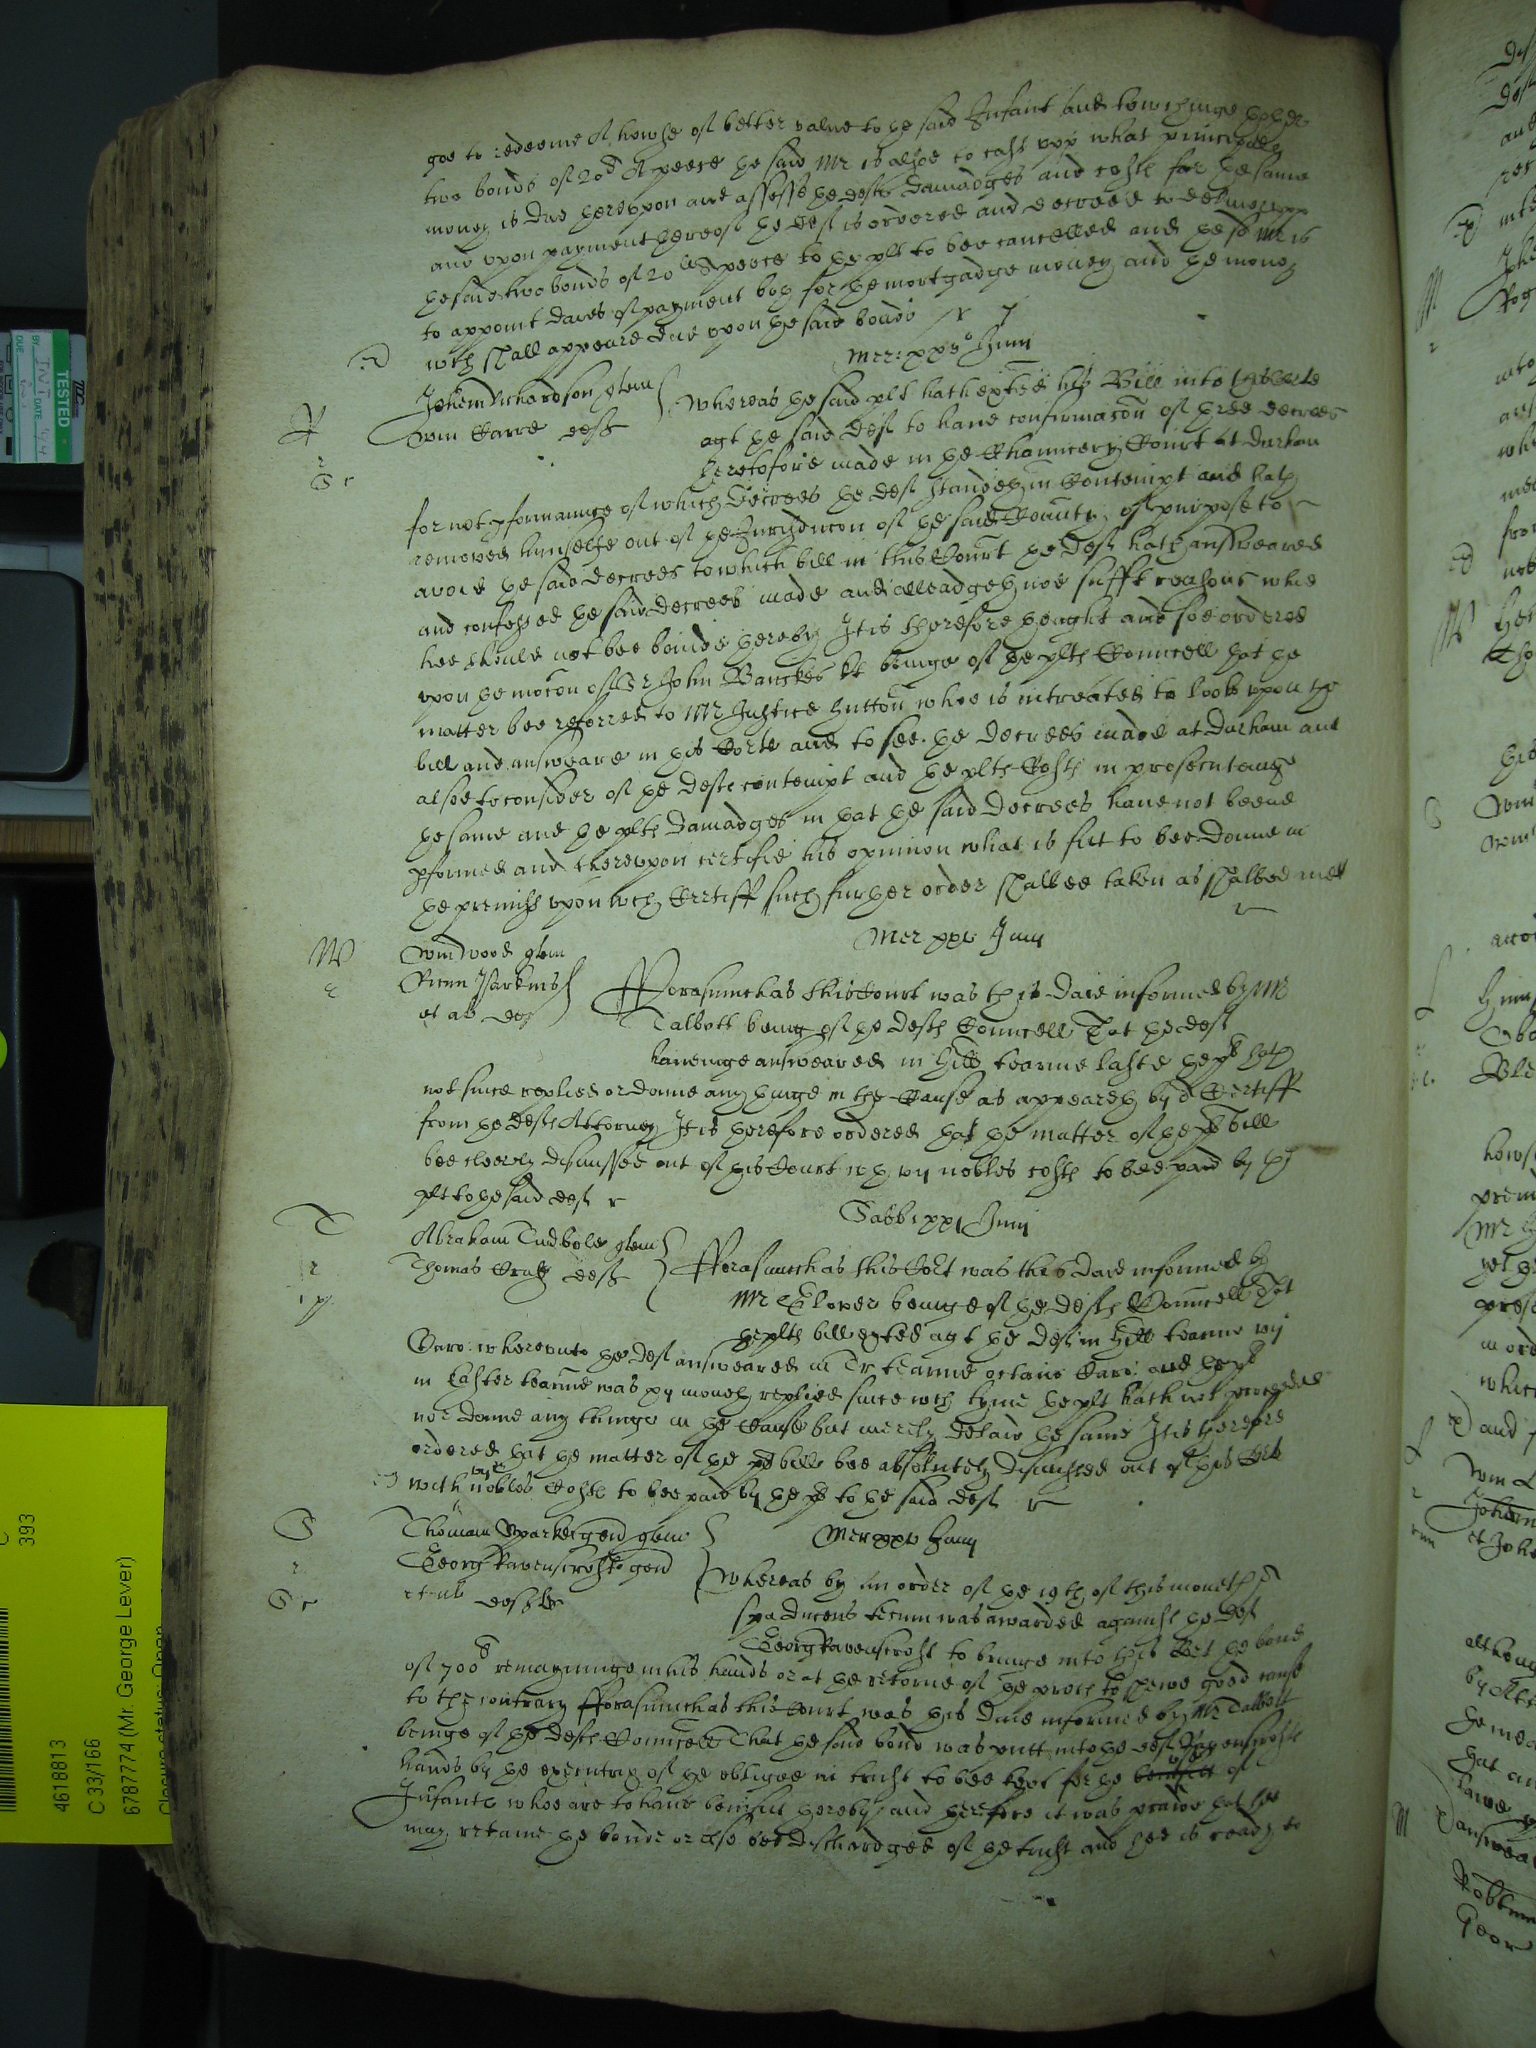 goe to redeeme A howse of better value to the said Infant and towchinge the other
two bonds of 20d A peece the said Mr is alsoe to cast upp what principall
money is due thereupon and assesse the defts damadges and costs for the same
and upon payment thereof the deft is ordered and decreed to deliver upp
the said two bonds of 20li A peece to the plt to bee cancelled and the sd Mr is
to appoint daies of payment both for the mortgadge money and the money
wch shall appeare due upon the said bonds
Mer: xxvo Junij
John Richardson quer
Wm Carre deft
Whereas the said plt hath exhited his Bill into this Corte
agt the said Deft to have confirmacon of three decrees
heretofore made in the Chauncery Court at Durham
for not pformaunce of which decrees the deft standeth in Contempt and hath
removed himselfe out of the Jurisdiccon of the said County of purpose to
avoid the said decrees to which bill in this Court the deft hath answeared
and confessed the said decrees made and alleadgeth noe sufft reasons whie
hee should not bee bound thereby It is therefore thought and soe ordered
upon the mocon of Sr John Banckes kt beinge of the plts Councell that the
matter bee referred to Mr Justice Hutton whoe is intreated to looke upon the
bill and answeare in this Corte and to see the decrees made at Durham and
alsoe to consider of the defts contempt and the plts Costs in prosecuteing
the same and the plts damadges in that the said decrees have not beene
pformed and thereupon certifie his opinion what is fitt to bee donne in
the premiss upon wch Certiff such further order shalbee taken as shalbee meet
Mer xxv Junij
Wm Wood quer
Parkins
et al def
Fforasmuch as this Court was this daie informed by Mr
Talbott being of the defts Councell That the deft
haveinge answeared in Hill tearme last the plt hath
not since replied or donne any thinge in the Cause as appeareth by a Certiff
from the defts Attorney It is therefore ordered that the matter of the plts Bill
bee cleerely dismissed out of this Court wth vij nobles costs to bee paid by the
plt to the said deft
Sabbi xxi Junij
Abraham Tudbole quer
Thomas deft
Fforasmuch as this Cort was this daie informed by
Mr Glover beinge of the defts Councell That
the plts bill exhited agt the deft in Hill tearme vij
Caro: whereunto the deft answeared in Tr: tearme octavo Caro: and the plt
in Easter tearme was xij moneth replied since wch tyme the plt hath not proceeded
nor donne any thinge in the Cause but merely delaie the same It is therefore
ordered that the matter of the plts bill bee absolutely dismissed out of this Cort
with nobles Costs to bee paid by the plt to the said deft
Thomam Sparke gen quer
Georg Ravenscrofte gen
et al deftes
Mer xxv Junij
Whereas by an order of the 19th of this moneth A
spa Ducens tecum was awarded against the deft
Georg Ravenscroft to bringe into this Cort the bond
of 700li remayninge in his hands or at the retorne of the proces to shewe good cause
to the contrary fforasmuch as this Court was this daie informed by Mr Talbott
beinge of the defts Councell That the said bond was putt into the deft Ravenscrofts
hands by the executrix of the obligee in trust to bee kept for the use of
Infants whoe are to have benifitt thereby and therefore it was praied that hee
may retaine the bonde or else bee dischardged of the trust and hee is ready to
TESTED
DUE DATE
393
4618813
C 33/166
6787774 (Mr. George Lever)
Closure status: Open